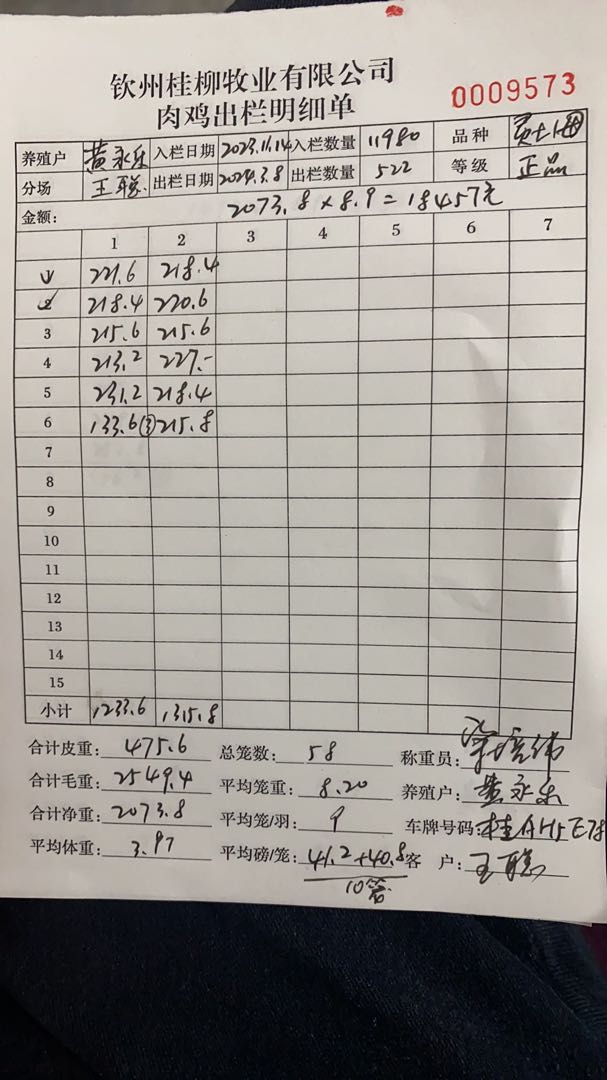 钦州桂柳牧业有限公司
肉鸡出栏明细单
0009573
养殖户 黄永乐 入栏日期 2023.11.14 入栏数量 11980 品种
分场 王聪 出栏日期 2024.3.8 出栏数量 522 等级 正品
金额: 2073.8×8.9=18457元
1 2 3 4 5 6 7
1 221.6 218.4
2 218.4 220.6
3 215.6 215.6
4 213.2 227.-
5 231.2 218.4
6 133.6③ 215.8
7
8
9
10
11
12
13
14
15
小计 1233.6 1315.8
合计皮重: 475.6 总笼数: 58 称重员:
合计毛重: 2549.4 平均笼重: 8.20 养殖户: 黄永乐
合计净重: 2073.8 平均笼/羽: 9 车牌号码: 桂AH5E78
平均体重: 3.97 平均磅/笼: 41.2+40.8 客 户: 王聪
10笼